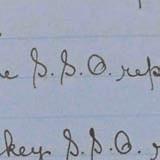 S.S.O. rep
key S.S.O.